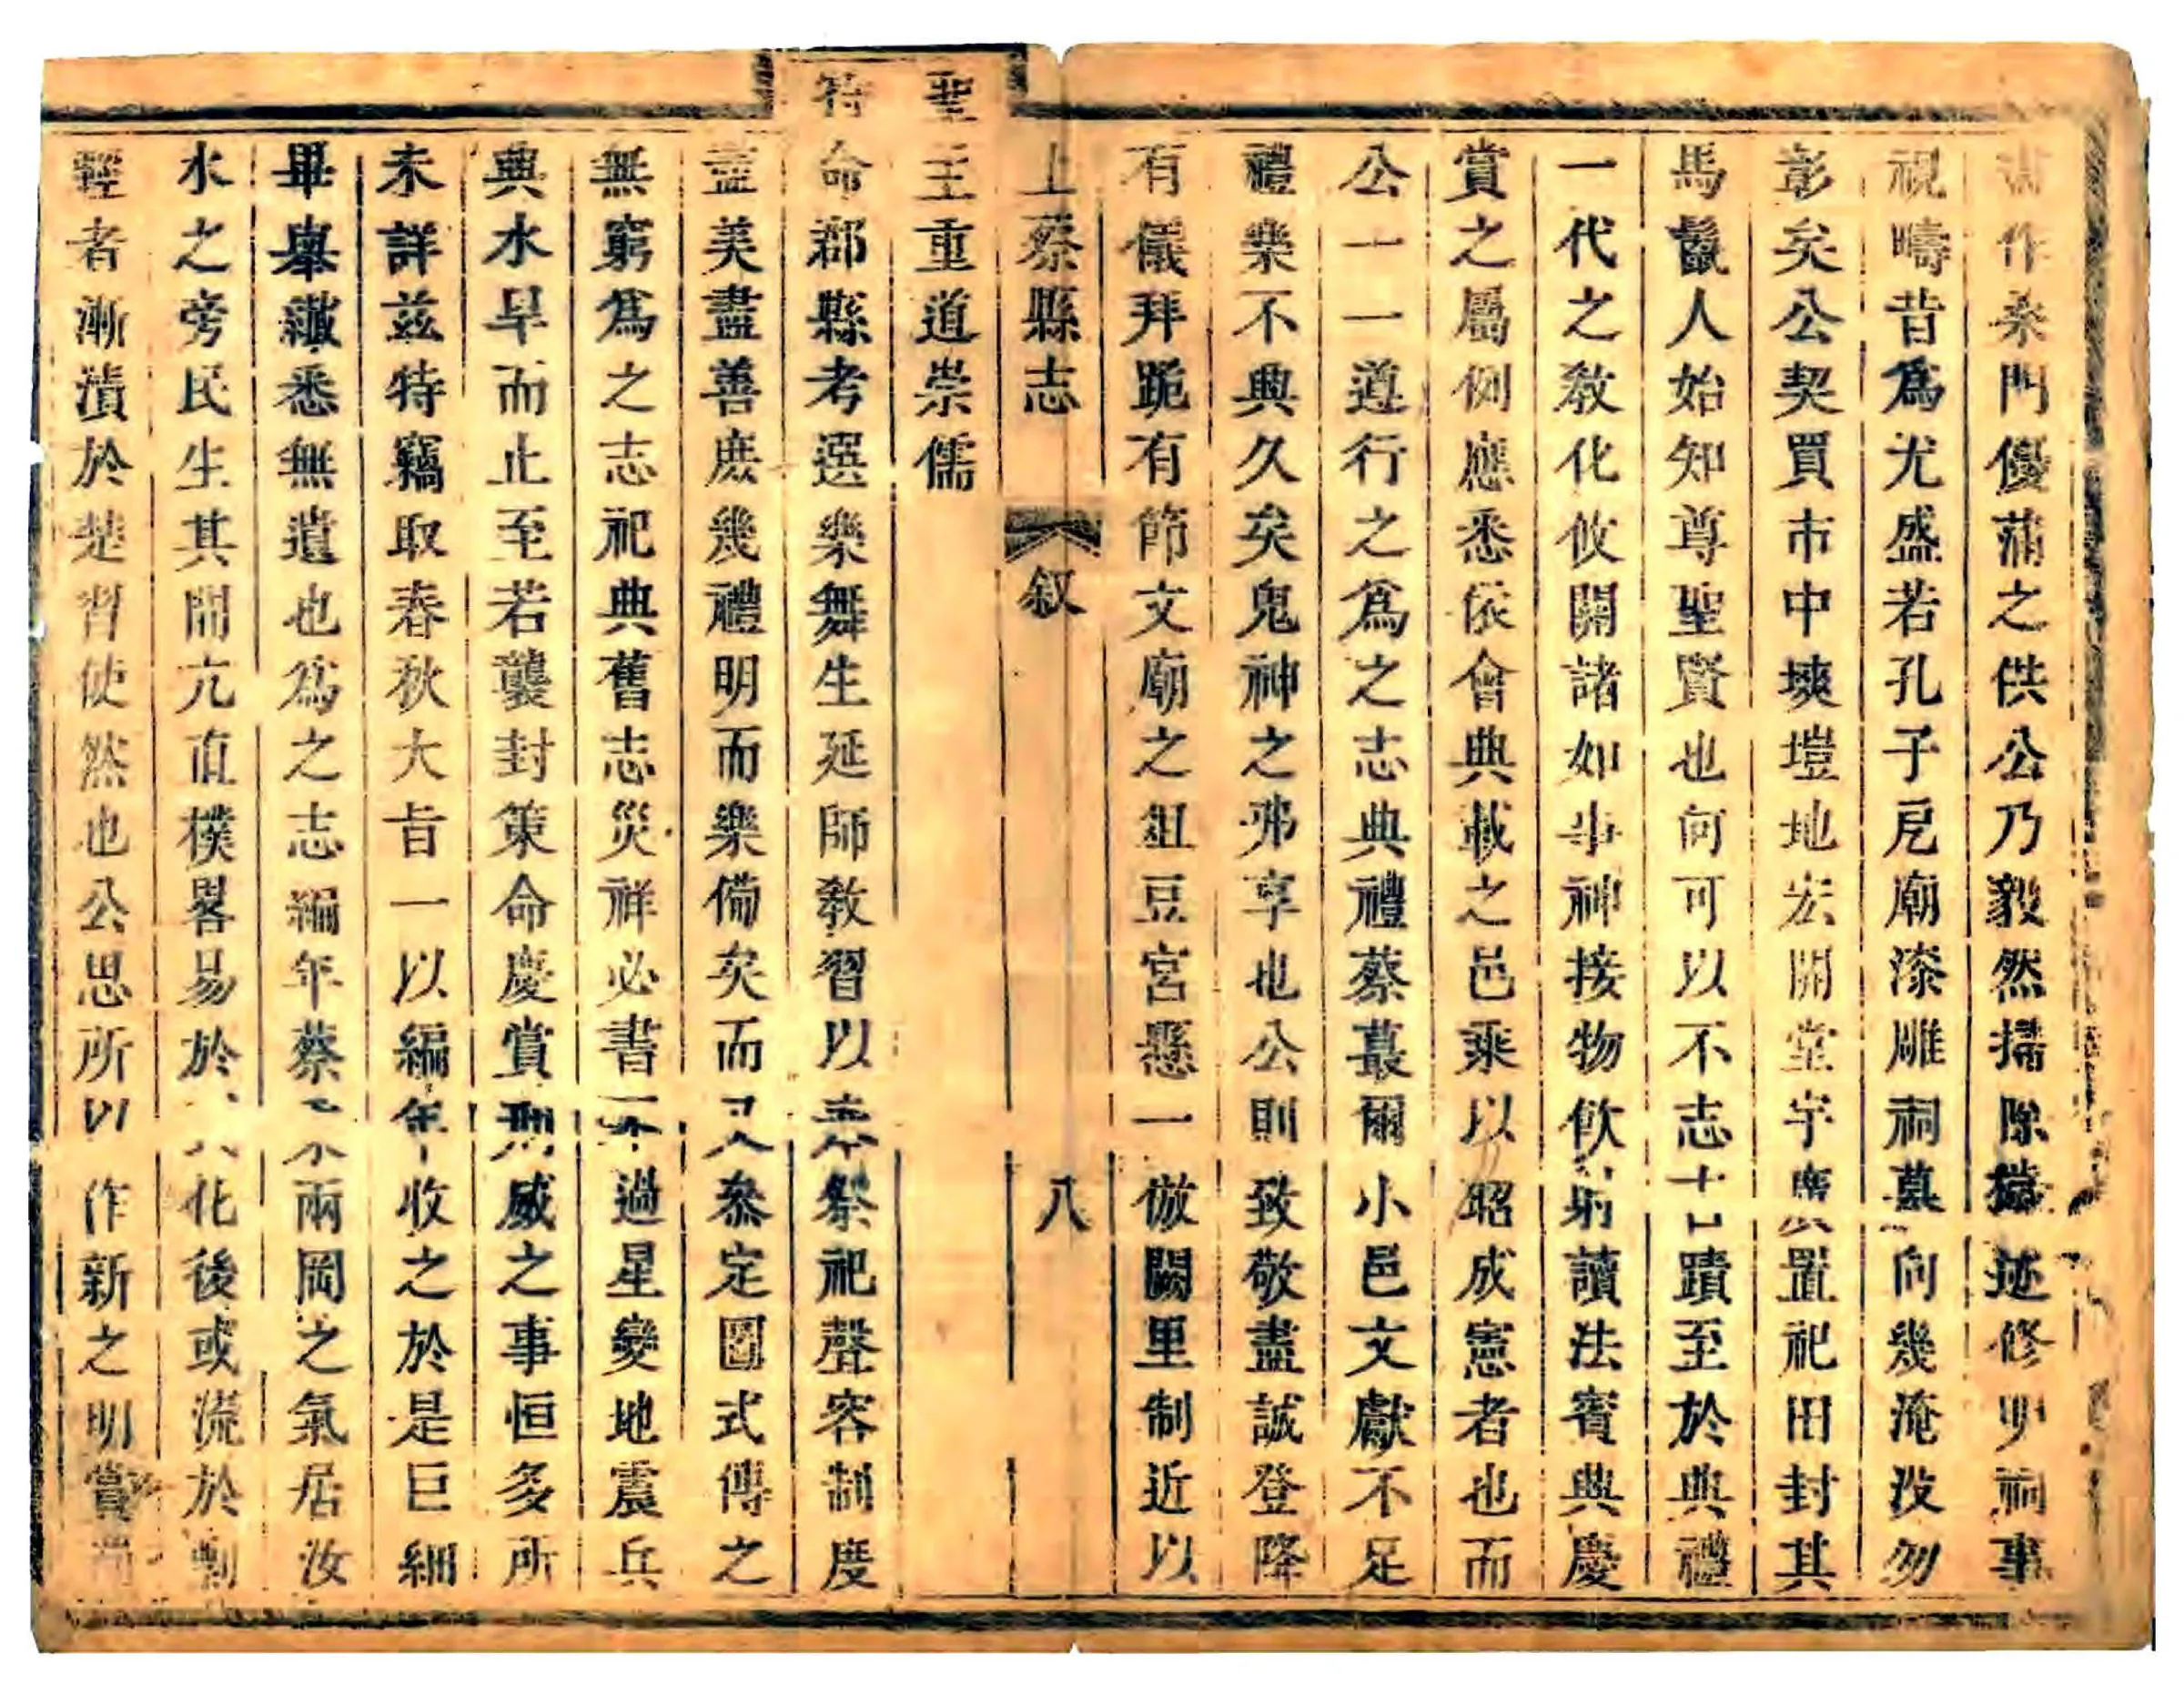 作桑門優蒲之供公乃毅然掃除穢迹修明祠事
視疇昔爲尤盛若孔子㫐廟漆雕祠墓向幾淹没勿
彰矣公契買市中塽塏地宏開堂宇廣置祀田封其
馬鬛人始知尊聖賢也何可以不志古蹟至於典禮
一代之敎化攸開諸如事神接物飲射讀法賓典慶
賞之屬例應悉依會典載之邑乘以昭成憲者也而
公一一遵行之爲之志典禮蔡蕞爾小邑文獻不足
禮樂不典久矣鬼神之弗享也公則致敬盡誠登降
有儀拜跪有節文廟之俎豆宮懸一倣闕里制近以
上蔡縣志 叙 八
聖主重道崇儒
特命郡縣考選樂舞生延師敎習以奉祭祀聲容制度
盡美盡善庶幾禮明而樂備矣而又叅定圖式傳之
無窮爲之志祀典舊志災祥必書不過星變地震兵
典水旱而止至若襲封策命慶賞刑威之事恒多所
未詳兹特竊取春秋大旨一以編年收之於是巨細
畢舉纎悉無遺也爲之志編年蔡之兩岡之氣居汝
水之旁民生其間亢直樸畧易於化後或流於
輕者漸漬於楚習使然也公思所以作新之明賞